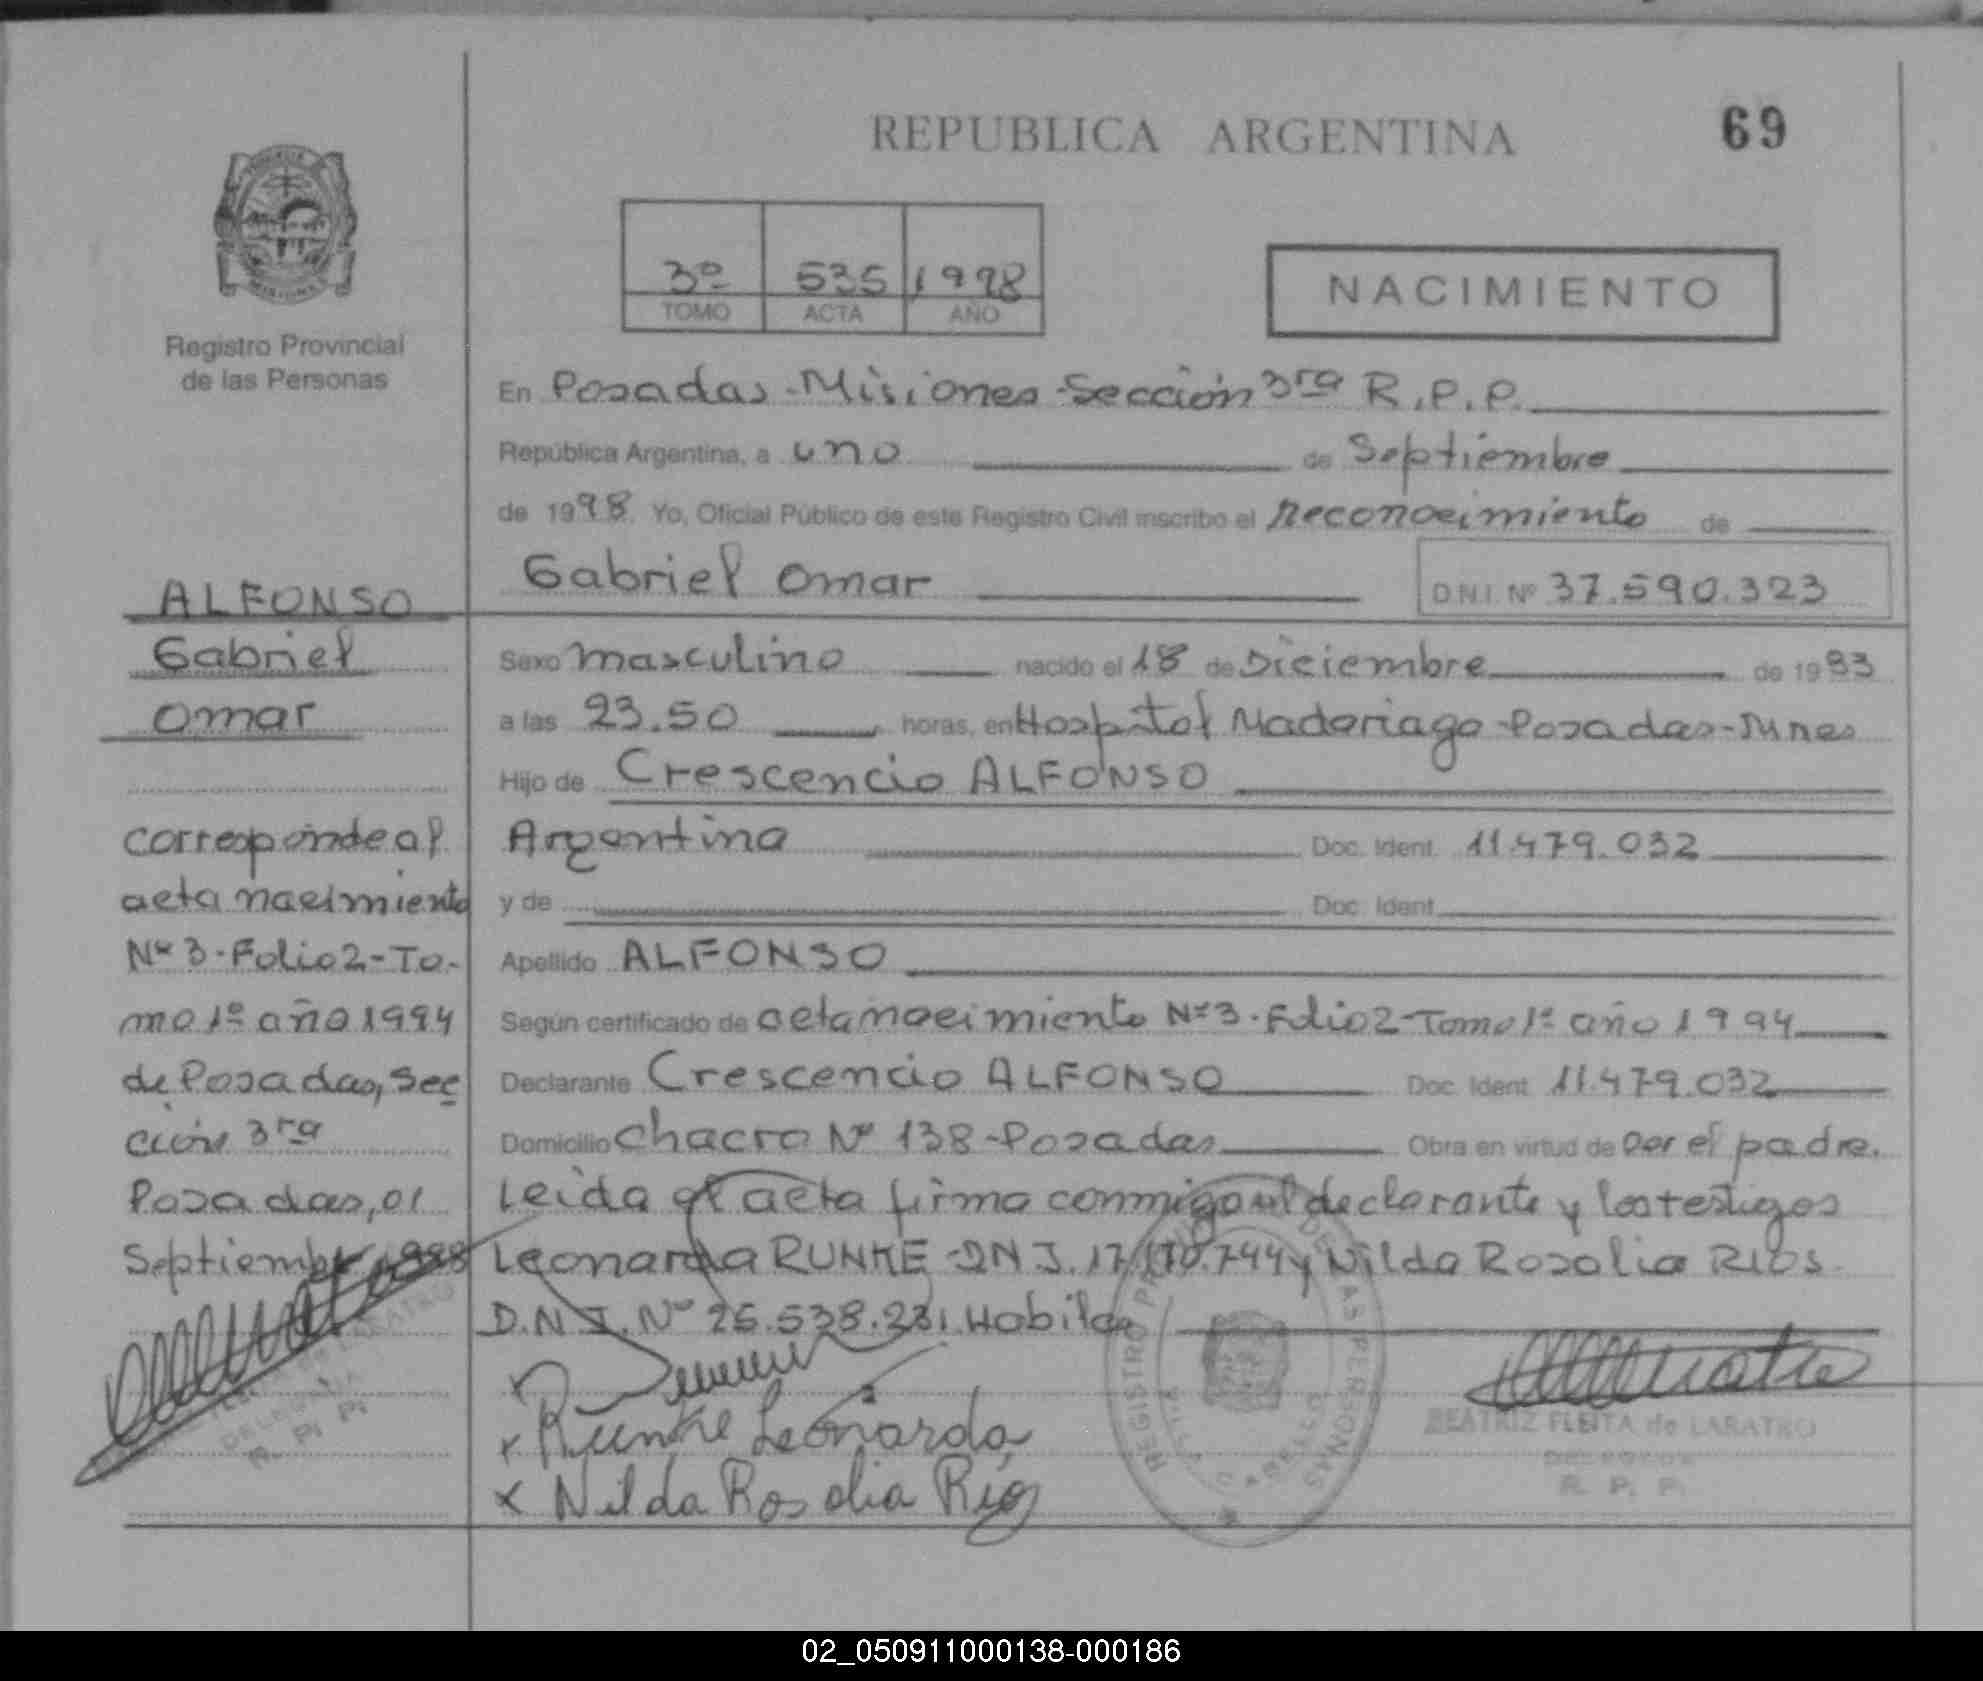 REPUBLICA ARGENTINA
69
3º 535 1998
TOMO ACTA AÑO
NACIMIENTO
Registro Provincial
de las Personas
En Posadas-Misiones-Sección 3ra R.P.P.
República Argentina, a uno de Septiembre
de 1998. Yo, Oficial Público de este Registro Civil inscribo el Reconocimiento de
Gabriel Omar D.N.I. Nº 37.590.323
Sexo masculino nacido el 18 de Diciembre de 1993
a las 23.50 horas, en Hospital Madariaga-Posadas-Mnes
Hijo de Crescencio ALFONSO
Argentina Doc. Ident. 11.479.032
y de Doc. Ident.
Apellido ALFONSO
Según certificado de acta nacimiento Nº 3-Folio 2-Tomo 1º año 1994
Declarante Crescencio ALFONSO Doc. Ident. 11.479.032
Domicilio Chacra Nº 138-Posadas Obra en virtud de ser el padre.
Leída el acta firma conmigo el declarante y los testigos
Leonarda RUNKE-DNI.17.170.744 y Nilda Rosalia RIOS.
D.N.I. Nº 26.538.231 Habilda
x Runke Leonarda
x Nilda Rosalia Rios
ALFONSO
Gabriel
Omar
corresponde al
acta nacimiento
Nº 3-Folio 2-To-
mo 1º año 1994
de Posadas, Sec
ción 3ra
Posadas, 01
Septiembre 1998
DELEGADA
R. P. P.
REGISTRO DE LAS PERSONAS
BEATRIZ FLEITA de LARATRO
DELEGADA
R. P. P.
02_050911000138-000186